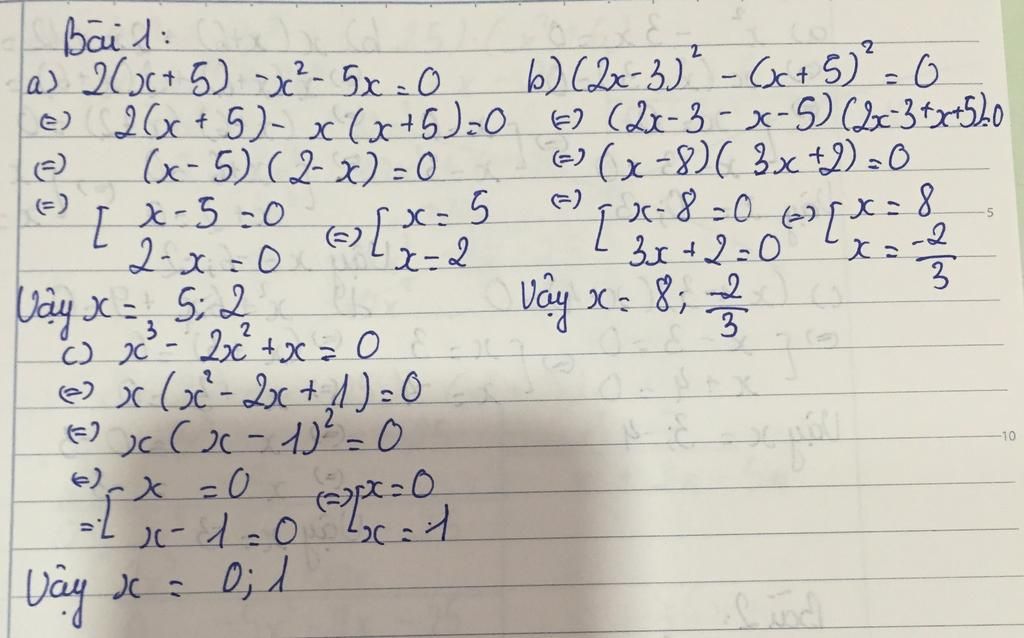 Bài 1:
a) 2(x+5) - x² - 5x = 0
⇔ 2(x+5) - x(x+5) = 0
⇔ (x-5)(2-x) = 0
⇔ [ x-5 = 0 ⇔ [ x = 5
2-x = 0 x = 2
Vậy x = 5; 2
b) (2x-3)² - (x+5)² = 0
⇔ (2x-3-x-5)(2x-3+x+5)=0
⇔ (x-8)(3x+2) = 0
⇔ [ x-8 = 0 ⇔ [ x = 8
3x+2 = 0 x = -2/3
Vậy x = 8; -2/3
c) x³ - 2x² + x = 0
⇔ x(x² - 2x + 1) = 0
⇔ x(x-1)² = 0
⇔ [ x = 0 ⇔ [ x = 0
= x-1 = 0 x = 1
Vậy x = 0; 1
5
10